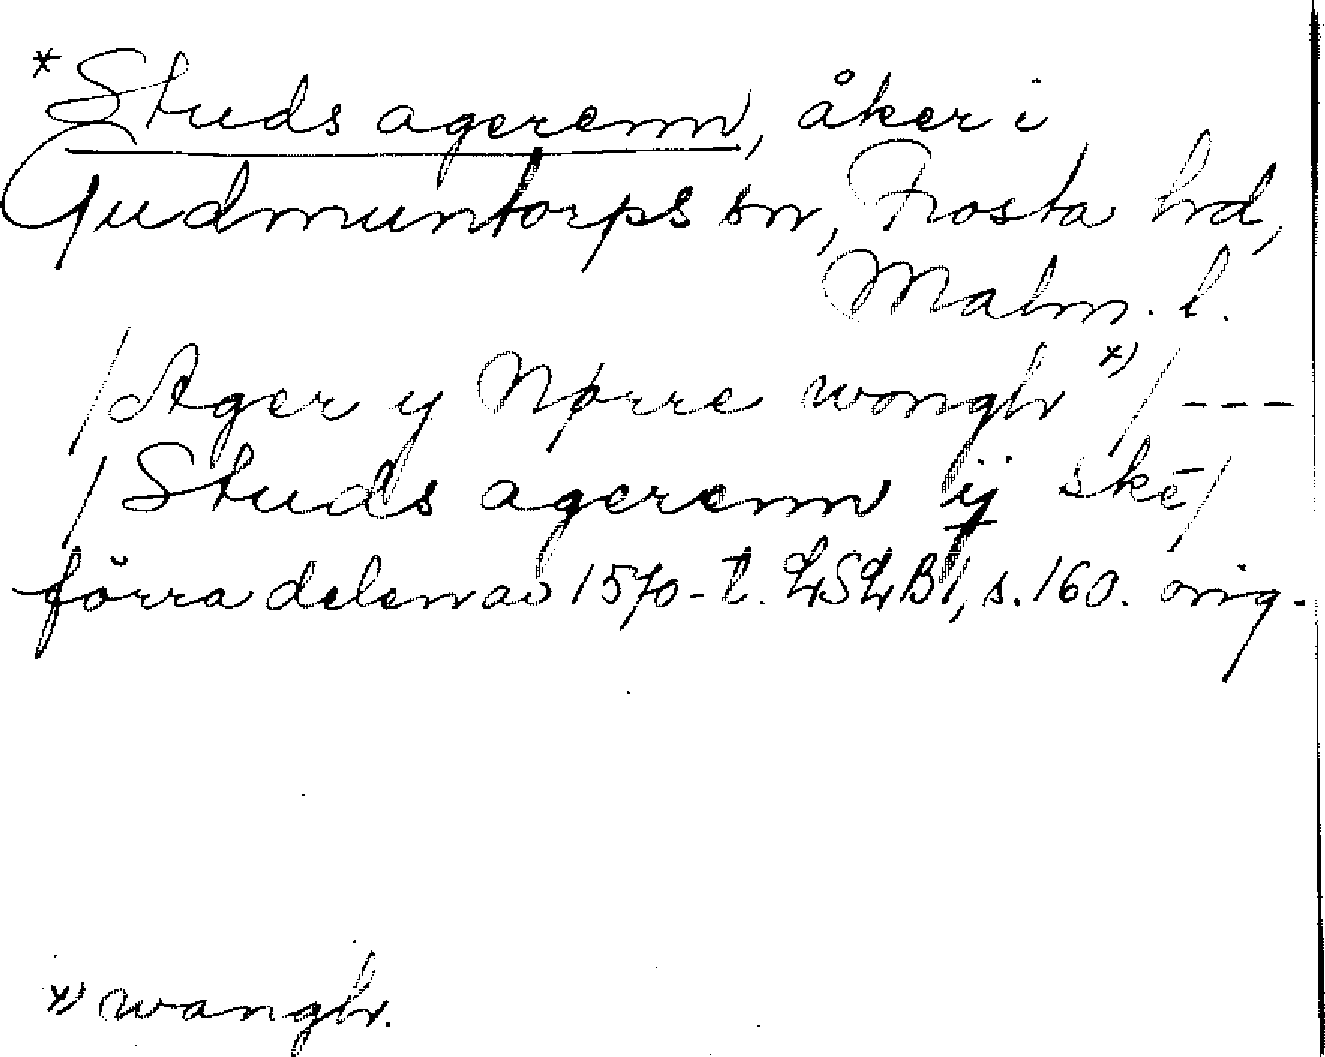 *Studs agerenn, åker i
Gudmuntorps sn, Frosta hd,
Malm. l.
/Ager y Nørre wongh x) / ---
/Studs agerenn ij skē/
förra delen av 1570-t. LSLB1, s. 160. orig.
x) wangh.